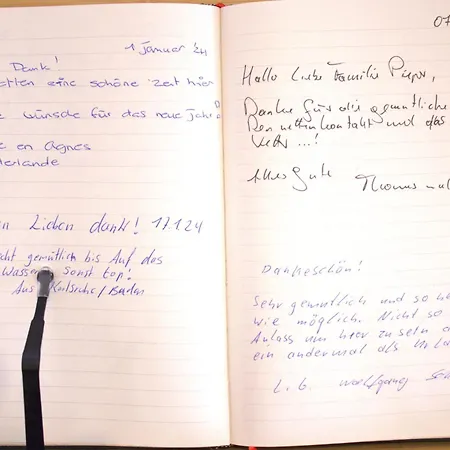 1 Januar 24
Dank!
eine schöne Zeit hier
wünsche für das neue Jahr
en Agnes
derlande
Lieben dank! 17.1.24
gemütlich bis Auf das
Wasser sonst top!
Aus Karlsruhe/Baden
07
Hallo liebe Familie Pieper,
Danke für die gemütliche
Den netten Kontakt und das
...!
Alles Gute
Thomas
Dankeschön!
Sehr gemütlich und so
wie möglich. Nicht so
Anlass um hier zu sein
ein andermal als Urla
L. G. Wolfgang